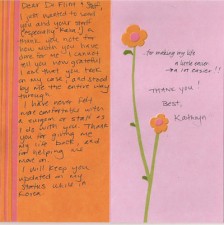 Dear Dr Flint & Staff,
I just wanted to send
you and your staff
(especially Kara!) a
thank you note for
how much you have
done for me! I cannot
tell you how grateful
I am that you took
on my case and stood
by me the entire way
through.
I have never felt
more comfortable with
a surgeon or staff as
I do with you. Thank
you for giving me
my life back, and
for helping me
move on.
I will keep you
updated on my
status while in
Korea.
for making my life
a little easier
a lot easier!!
THANK YOU!
Best,
Kathryn